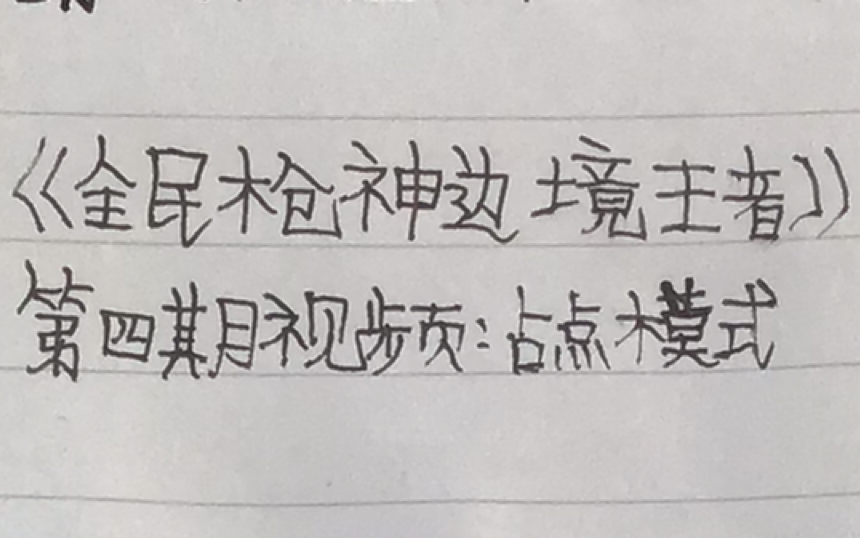 《全民枪神边境王者》
第四期视频:占点模式